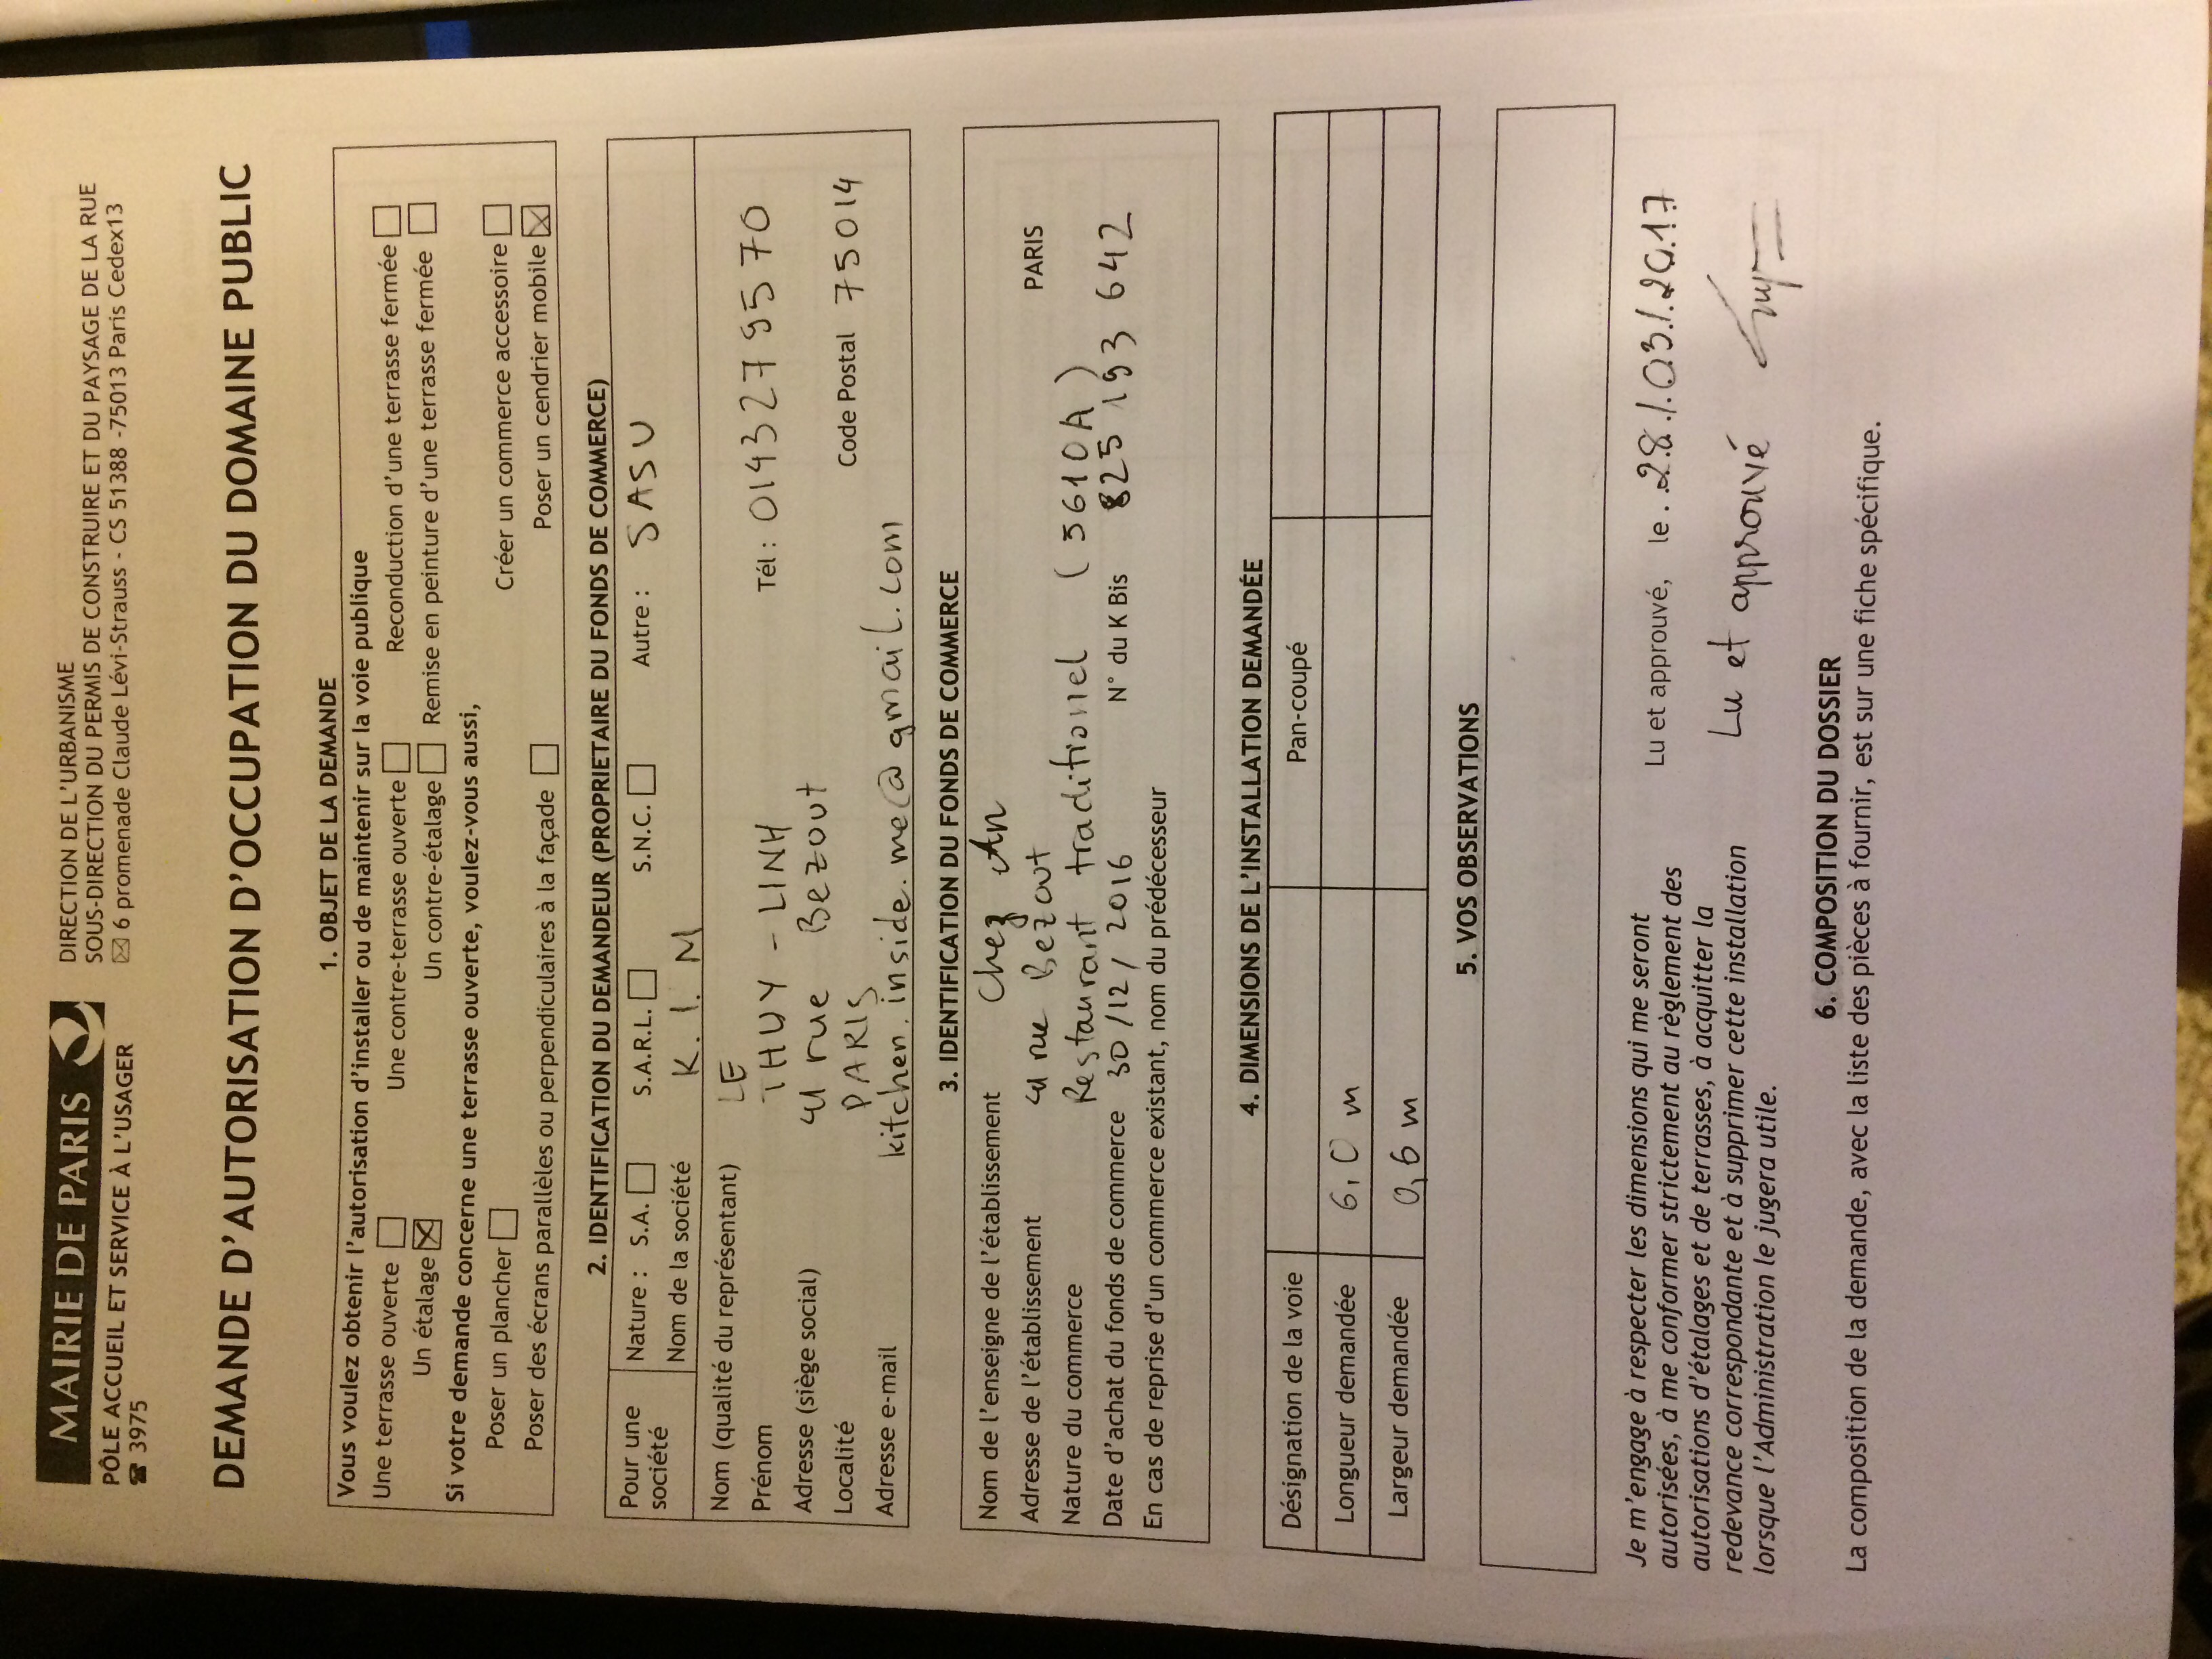 MAIRIE DE PARIS
PÔLE ACCUEIL ET SERVICE À L'USAGER
☎ 3975
DIRECTION DE L'URBANISME
SOUS-DIRECTION DU PERMIS DE CONSTRUIRE ET DU PAYSAGE DE LA RUE
✉ 6 promenade Claude Lévi-Strauss - CS 51388 -75013 Paris Cedex13
DEMANDE D'AUTORISATION D'OCCUPATION DU DOMAINE PUBLIC
1. OBJET DE LA DEMANDE
Vous voulez obtenir l'autorisation d'installer ou de maintenir sur la voie publique
Une terrasse ouverte ☐ Une contre-terrasse ouverte ☐ Reconduction d'une terrasse fermée ☐
Un étalage ☒ Un contre-étalage ☐ Remise en peinture d'une terrasse fermée ☐
Si votre demande concerne une terrasse ouverte, voulez-vous aussi,
Poser un plancher ☐ Créer un commerce accessoire ☐
Poser des écrans parallèles ou perpendiculaires à la façade ☐ Poser un cendrier mobile ☒
2. IDENTIFICATION DU DEMANDEUR (PROPRIETAIRE DU FONDS DE COMMERCE)
Pour une société
Nature : S.A. ☐ S.A.R.L. ☐ S.N.C. ☐ Autre : SASU
Nom de la société K. I. M
Nom (qualité du représentant) LE
Prénom THUY - LINH Tél : 0143279570
Adresse (siège social) 41 rue Bezout
Localité PARIS Code Postal 75014
Adresse e-mail kitchen.inside.me@gmail.com
3. IDENTIFICATION DU FONDS DE COMMERCE
Nom de l'enseigne de l'établissement Chez An
Adresse de l'établissement 41 rue Bezout PARIS
Nature du commerce Restaurant traditionnel (5610A)
Date d'achat du fonds de commerce 30/12/2016 N° du K Bis 825 193 642
En cas de reprise d'un commerce existant, nom du prédécesseur
4. DIMENSIONS DE L'INSTALLATION DEMANDÉE
Désignation de la voie Pan-coupé
Longueur demandée 6,0 m
Largeur demandée 0,6 m
5. VOS OBSERVATIONS
Je m'engage à respecter les dimensions qui me seront
autorisées, à me conformer strictement au règlement des
autorisations d'étalages et de terrasses, à acquitter la
redevance correspondante et à supprimer cette installation
lorsque l'Administration le jugera utile.
Lu et approuvé, le 28/03/2017
Lu et approuvé
6. COMPOSITION DU DOSSIER
La composition de la demande, avec la liste des pièces à fournir, est sur une fiche spécifique.